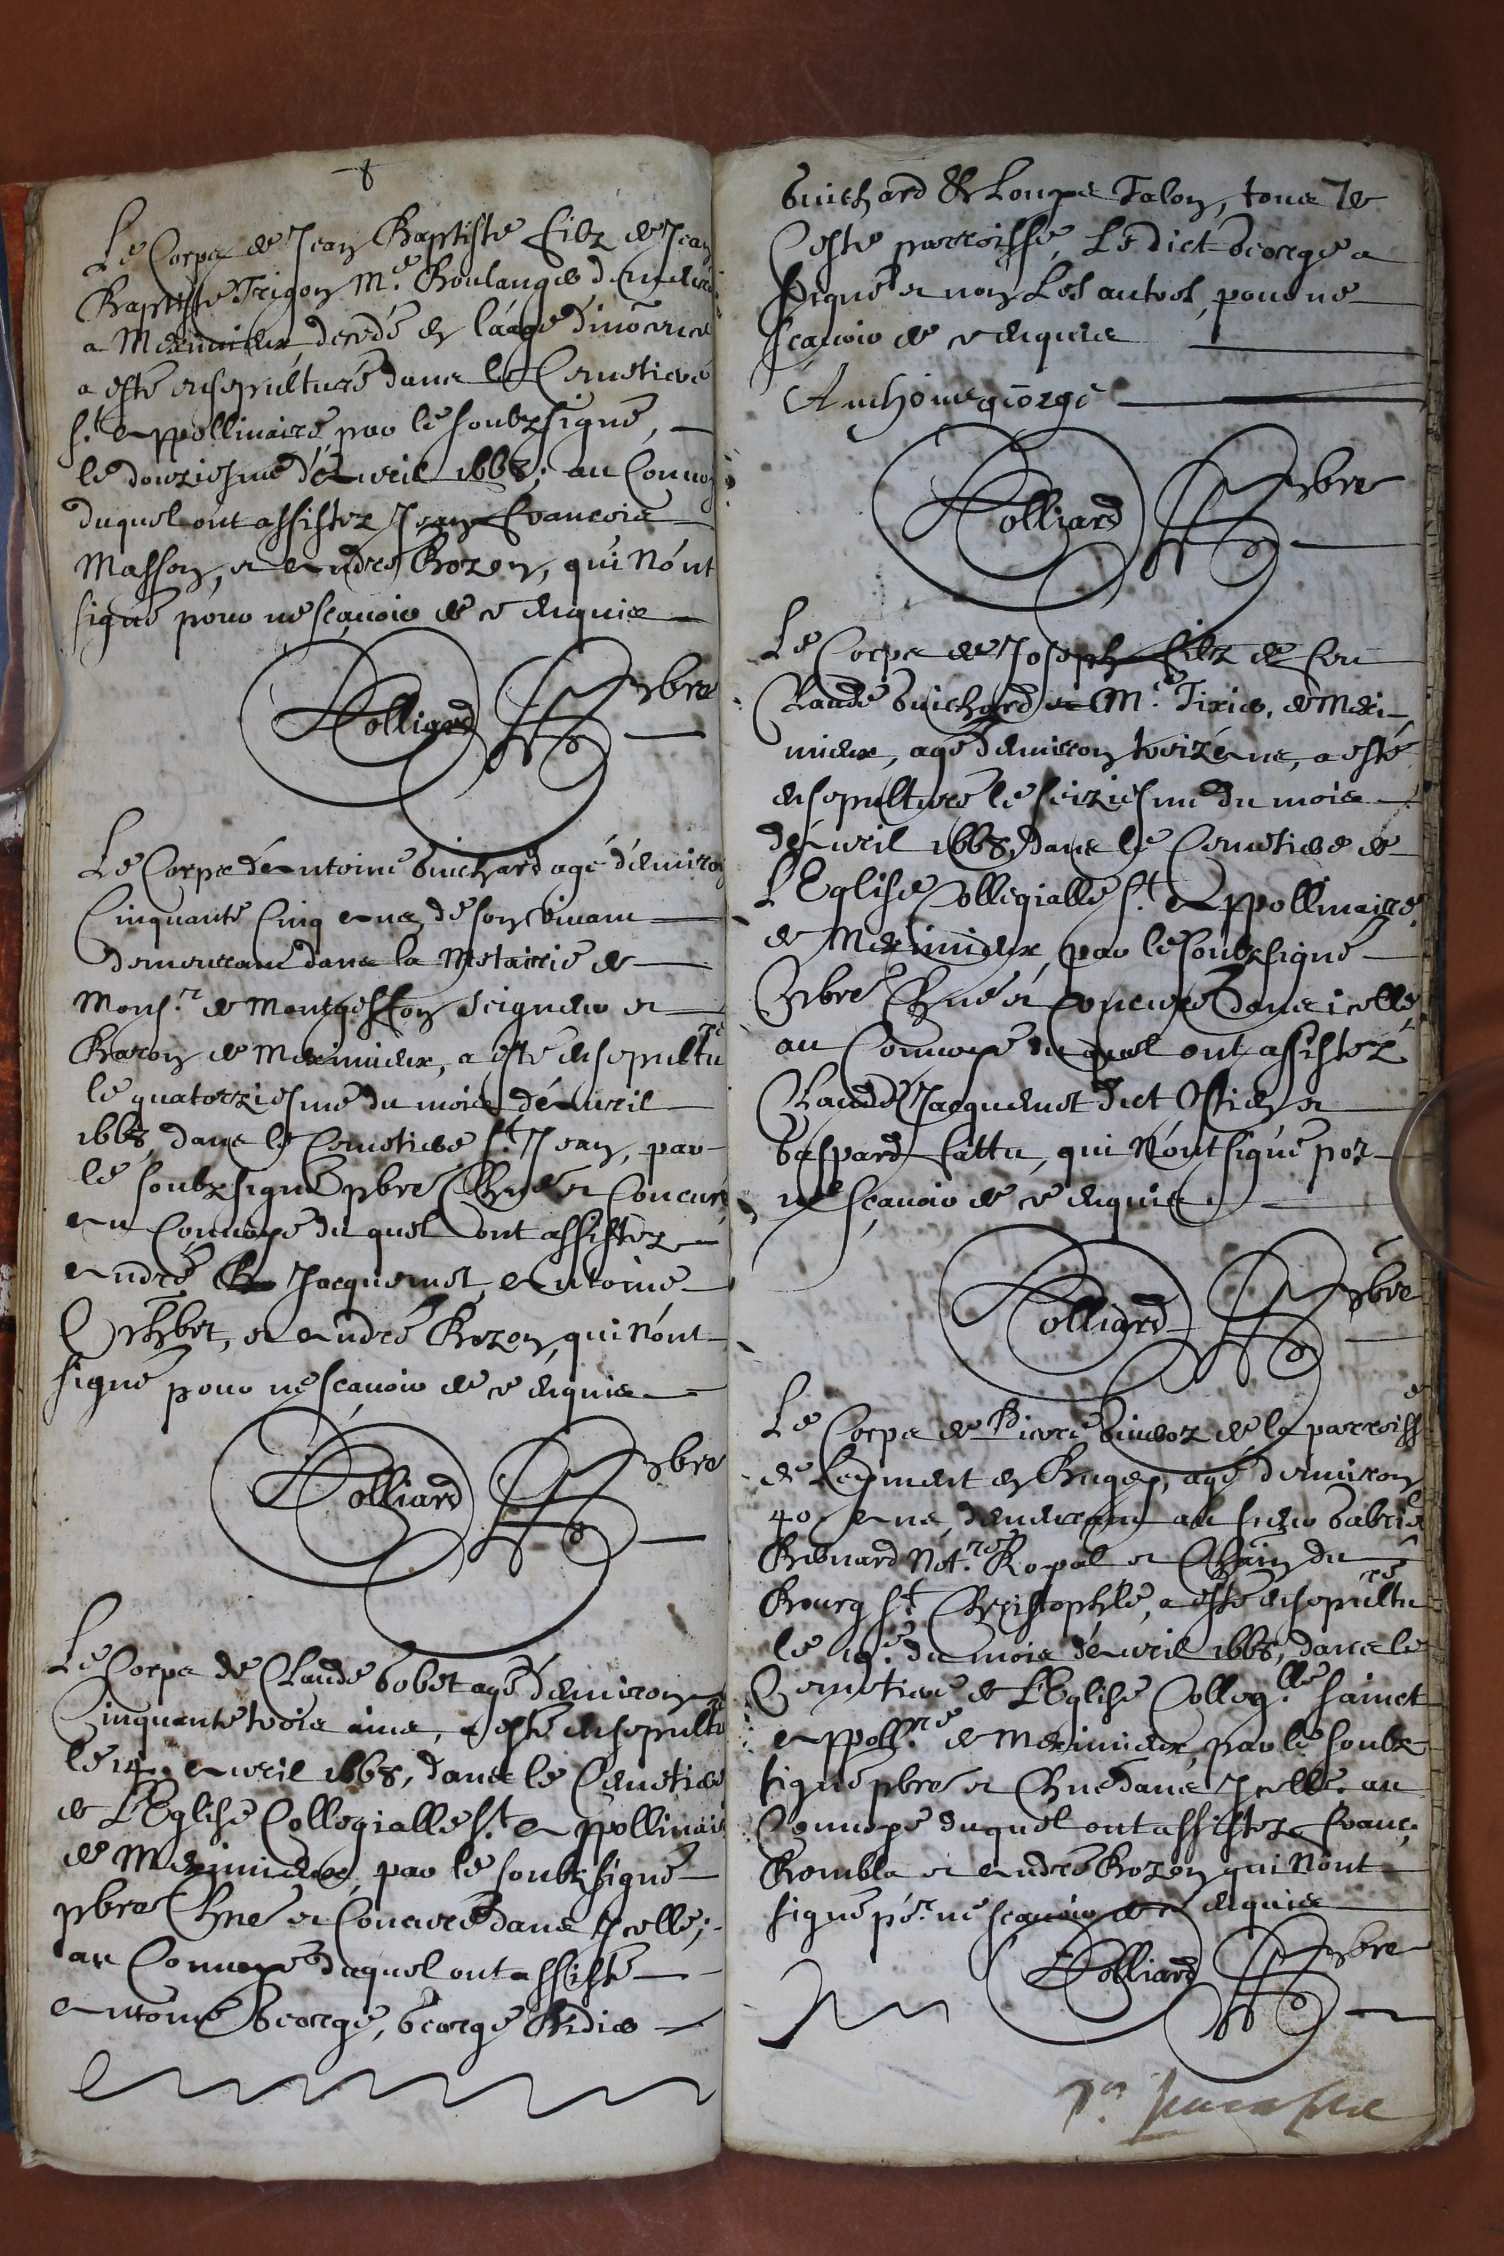 Le Corps de Jean Baptiste filz de Jean
Baptiste Trigon Me. Boulanger demeurant
a Meximieux decedé en láage dinocence
a esté ensepulturé dans le Cemetiere
St. Appollinaire, par le soubzsigné,
le douziesme d'Avril 1668; au Convoy
duquel ont assistez Jean Francois
Masson, et Andre Bozon, qui N'ont
signé pour ne sçavoir de ce enquis
Dolliard pbre
Le Corps d'Antoine Guichard agé d'environ
Cinquante Cinq ans, de son vivant
demeurant dans la Metairie de
Monsr. de Seigneur et
Baron de Meximieux, a esté ensepultu
ré
le quatorziesme du mois d'Avril
1668, dans le Cemetiere St. Jean, par
le soubzsigné pbre Chne et Concuré,
au Convoye du quel ont assistez
André Jacquemet, Antoine
et André Bozon, qui N'ont
signé pour ne sçavoir de ce enquis
Dolliard pbre
Le Corps de Claude Gobet agé d'environ
Cinquante trois ans, a esté ensepultu
ré
le 14. Avril 1668, dans le Cemetiere
de L'Eglise Collegialle St. Appollinaire
de Meximieux, par le soubzsigné
pbre Chne et Concuré dans Icelle;
au Convoye duquel ont assisté
Antoine George, George Didier
Guichard & Loups Talon, tous de
Ceste parroisse, Le dict George a
signé et non Les autres, pour ne
scavoir de ce enquis
Anthoine george
Dolliard pbre
Le Corps de Joseph filz de feu
Claude Guichard Me. Tixier, de Mexi-
mieux, agé d'environ treize ans, a esté
ensepulturé le seiziesme du mois
d'Avril 1668, dans le Cemetiere de
L'Eglise Collegialle St. Appollinaire
de Meximieux, par le soubzsigné
Pbre Chne et Concuré dans icelle,
au Convoye du quel ont assistez
Claude Jacquemet dict et
Gaspard fattu, qui N'ont signé por
ne sçavoir de ce enquis
Dolliard pbre
Le Corps de Pierre de la parroisse
de Leyment en Bugey, agé d'environ
40. ans, demeurant au sieur Gabriel
Bernard Notre. Royal et Chain du
Bourg St. Christophle, a esté ensepultu
ré
le 19e. du mois d'Avril 1668, dans le
Cemetiere de L'Eglise Colleg.lle Sainct
Appoll.re de Meximieux, par le soubz
signé pbre et Chne dans Icelle. au
Convoye duquel ont assistez Franc.
Rombla et André Bozon qui N'ont
signé pr. ne scavoir de ce enquis
Dolliard pbre